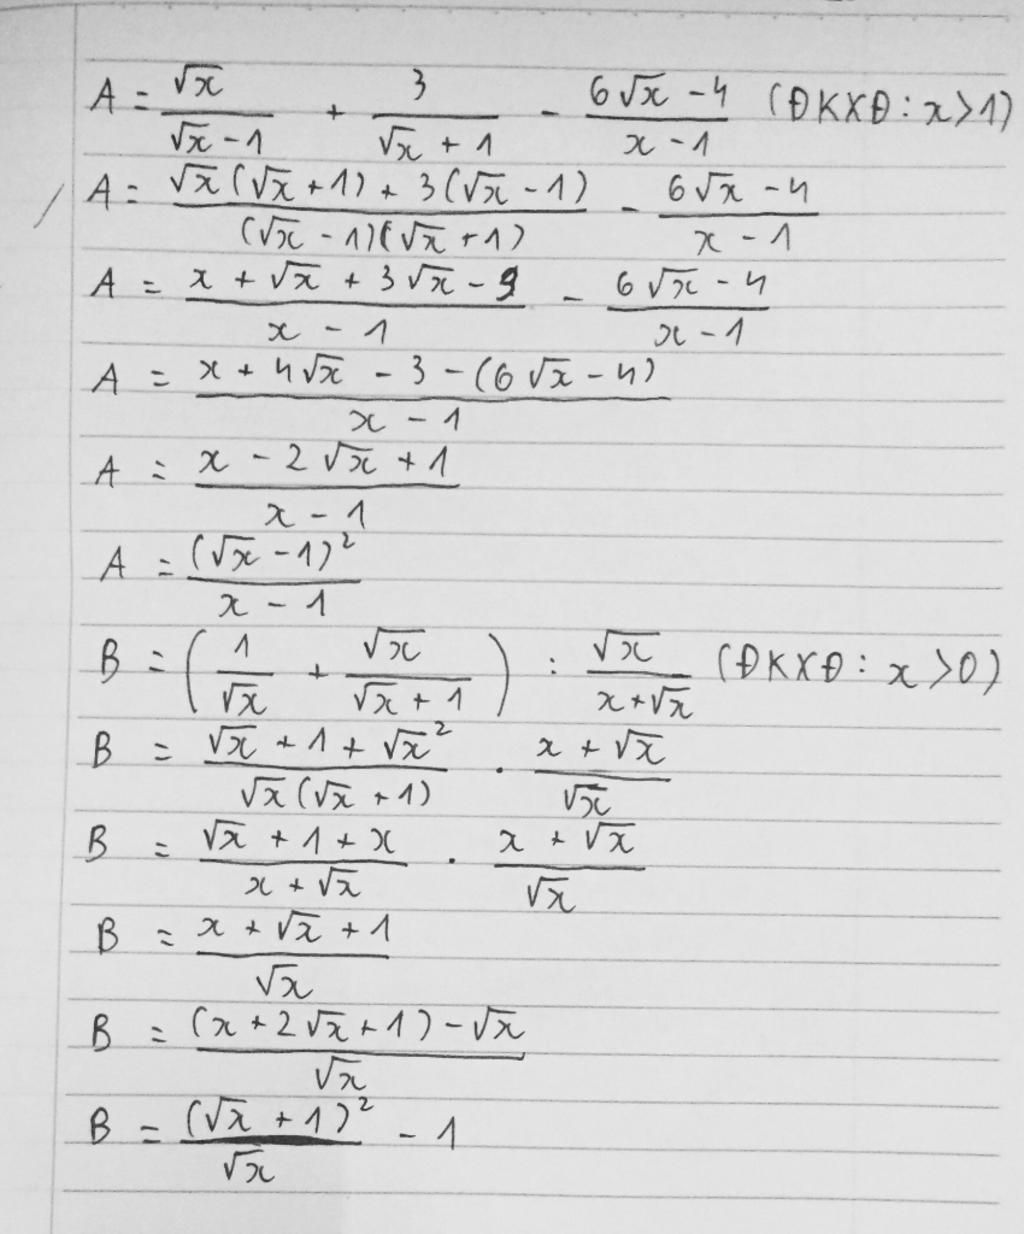 A = √x/(√x - 1) + 3/(√x + 1) - (6√x - 4)/(x - 1) (ĐKXĐ: x > 1)
A = (√x(√x + 1) + 3(√x - 1))/((√x - 1)(√x + 1)) - (6√x - 4)/(x - 1)
A = (x + √x + 3√x - 3)/(x - 1) - (6√x - 4)/(x - 1)
A = (x + 4√x - 3 - (6√x - 4))/(x - 1)
A = (x - 2√x + 1)/(x - 1)
A = (√x - 1)²/(x - 1)
B = (1/√x + √x/(√x + 1)) : √x/(x + √x) (ĐKXĐ: x > 0)
B = (√x + 1 + √x²)/(√x(√x + 1)) . (x + √x)/√x
B = (√x + 1 + x)/(x + √x) . (x + √x)/√x
B = (x + √x + 1)/√x
B = ((x + 2√x + 1) - √x)/√x
B = (√x + 1)²/√x - 1